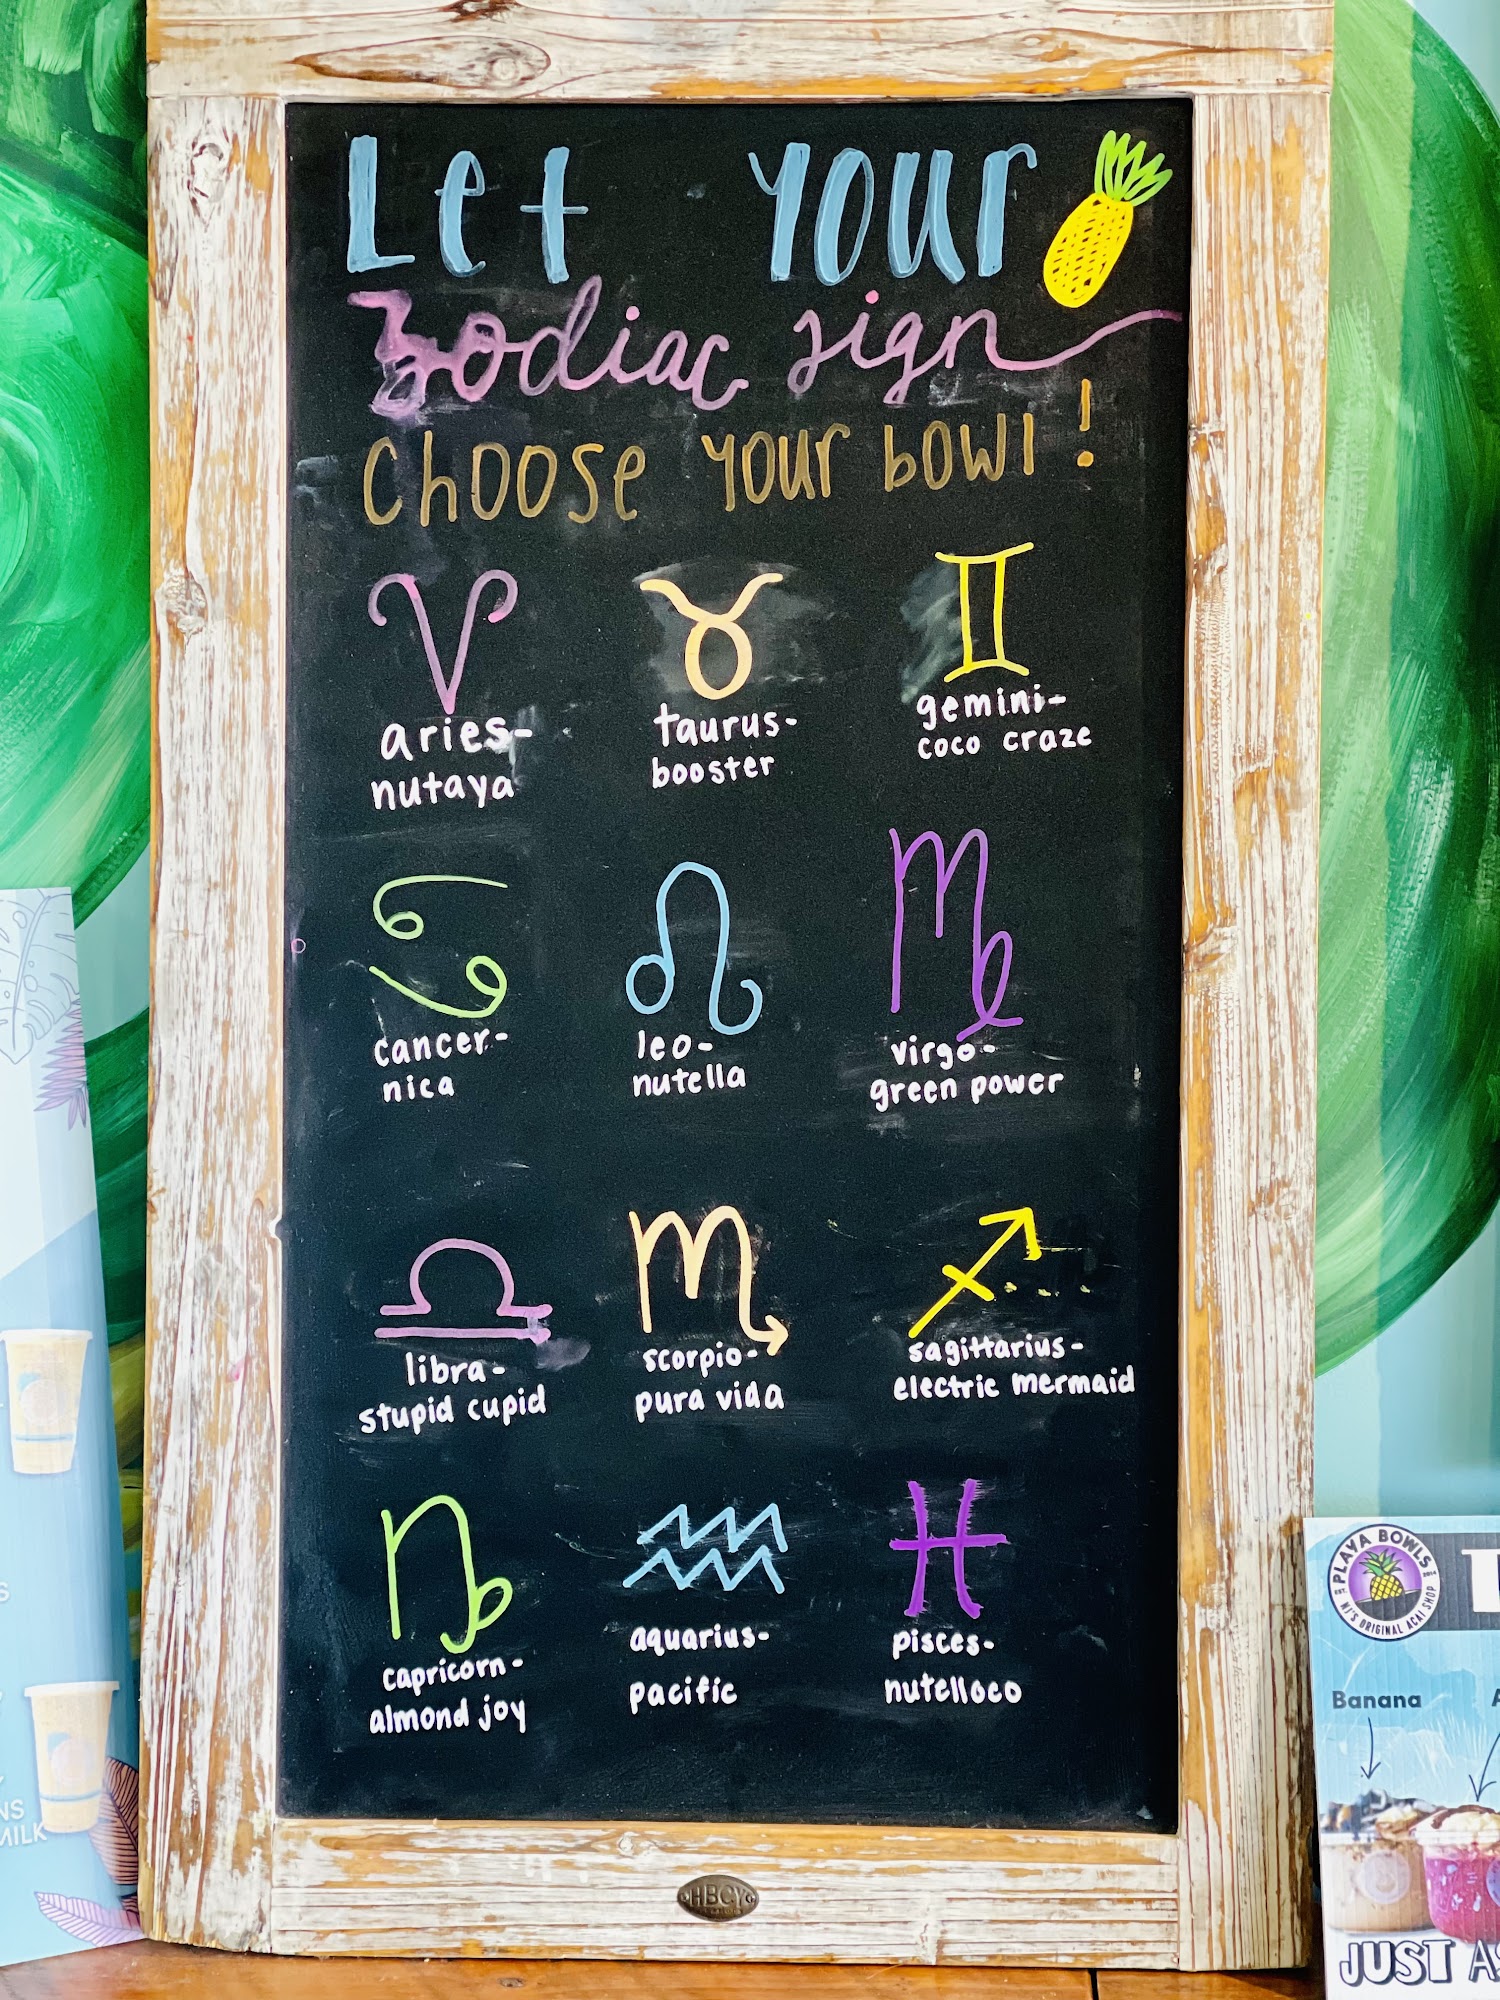 Let Your
Zodiac sign
Choose your bowl!
aries-
nutaya
taurus-
booster
gemini-
coco craze
cancer-
nica
leo-
nutella
virgo-
green power
libra-
stupid cupid
scorpio-
pura vida
sagittarius-
electric mermaid
capricorn-
almond joy
aquarius-
pacific
pisces-
nutelloco
HBCY
PLAYA BOWLS
NJ'S ORIGINAL ACAI SHOP
Banana
MILK
JUST